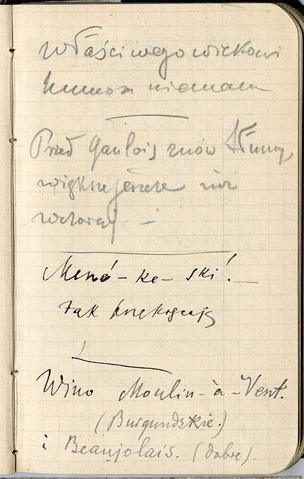 właściwego wiekowi
humoru niemam
Przed Gaulois znów tłumy
większe jeszcze niż
wczoraj —
Mené-ke-ski! —
tak przekręcają
Wino Moulin-à-Vent.
(Burgundskie.)
i Beaujolais. (dobre).